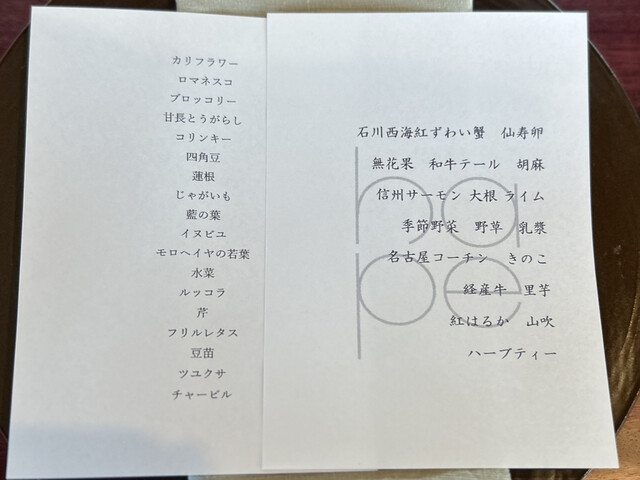 カリフラワー
ロマネスコ
ブロッコリー
甘長とうがらし
コリンキー
四角豆
蓮根
じゃがいも
藍の葉
イヌビユ
モロヘイヤの若葉
水菜
ルッコラ
芹
フリルレタス
豆苗
ツユクサ
チャービル
石川西海紅ずわい蟹　仙寿卵
無花果　和牛テール　胡麻
信州サーモン 大根 ライム
季節野菜　野草　乳漿
名古屋コーチン　きのこ
経産牛　里芋
紅はるか　山吹
ハーブティー
ha
pe